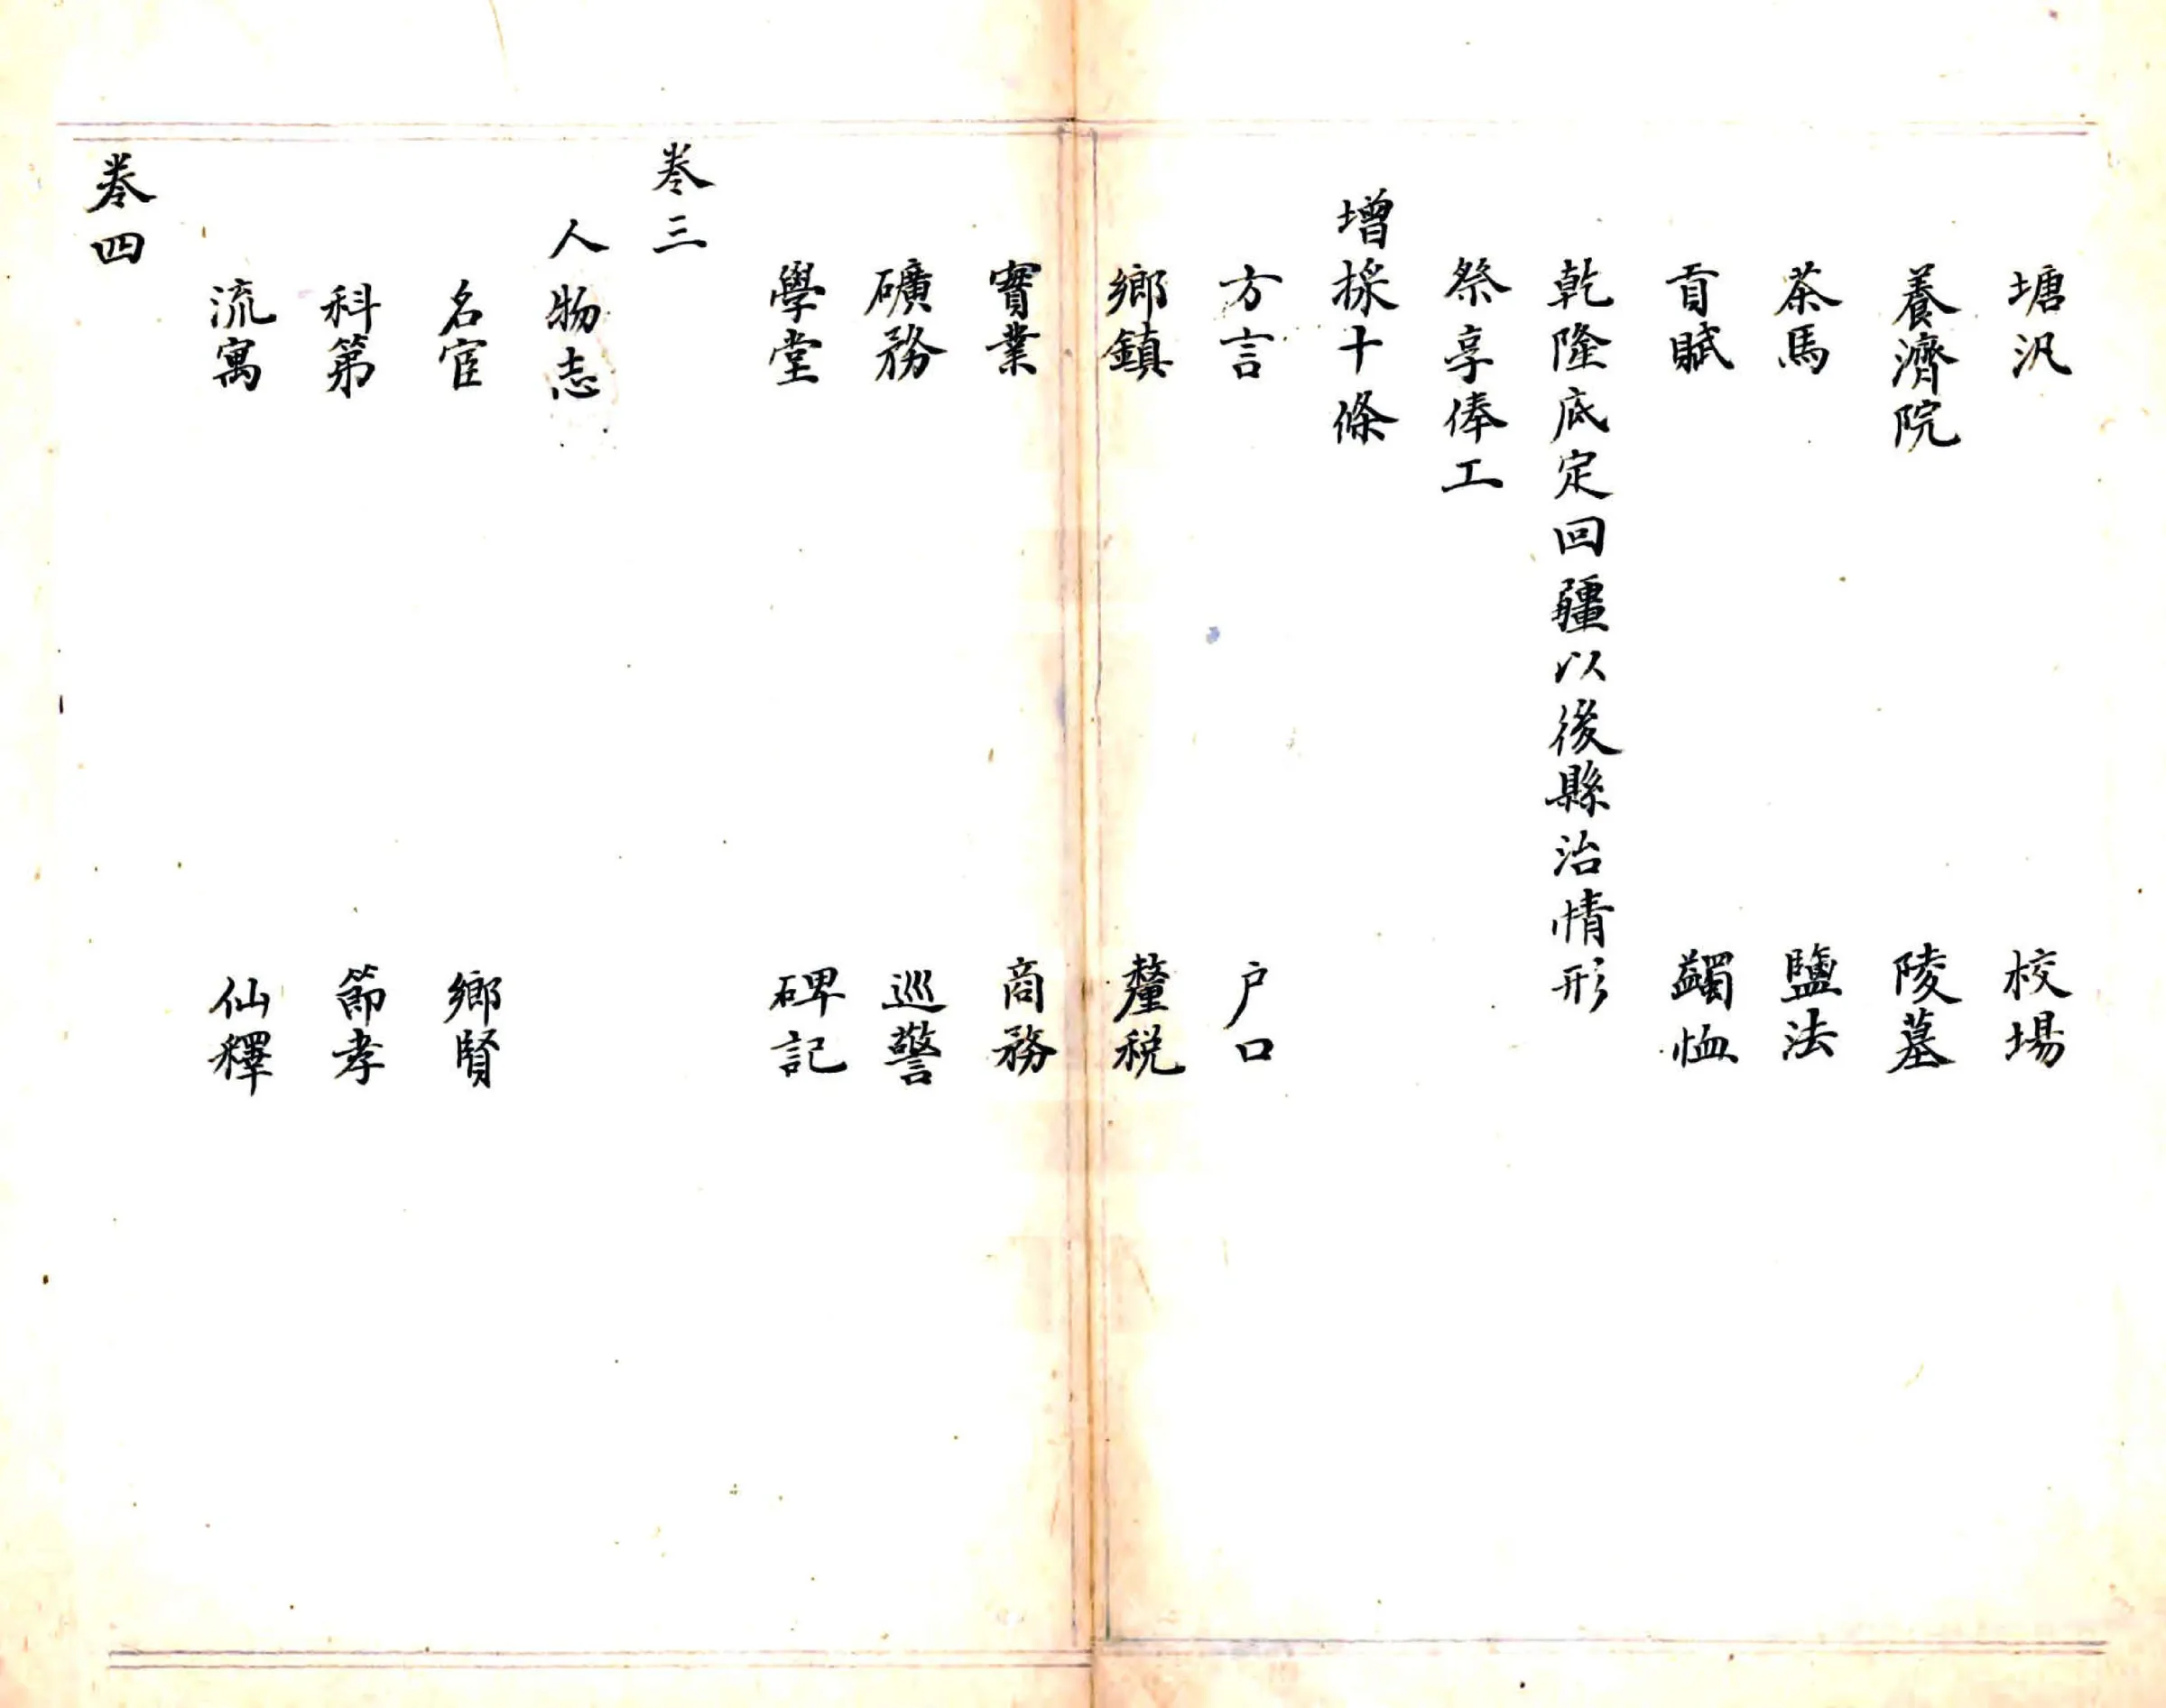 塘汛　校場
養濟院　陵墓
茶馬　鹽法
貢賦　蠲恤
乾隆底定回疆以後縣治情形
祭享俸工
增採十條
方言　户口
鄉鎮　釐税
實業　商務
礦務　巡警
學堂　碑記
卷三
人物志
名宦　鄉賢
科第　節孝
流寓　仙釋
卷四